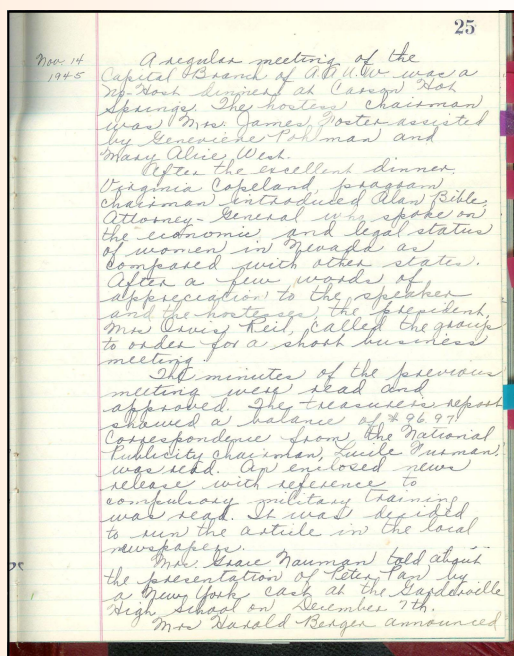 25
Nov. 14
1945
A regular meeting of the
Capital Branch of A.A.U.W. was a
No-Host dinner at Carson Hot
Springs. The hostess chairman
was Mrs. James Foster assisted
by Genevieve Pohlman and
Mary Alice West.
After the excellent dinner,
Virginia Copeland, program
chairman introduced Alan Bible,
Attorney-General who spoke on
the economic and legal status
of women in Nevada as
compared with other states.
After a few words of
appreciation to the speaker
and the hostesses, the president,
Mrs Orvis Reil, called the group
to order for a short business
meeting.
The minutes of the previous
meeting were read and
approved. The treasurers report
showed a balance of $96.97.
Correspondence from the National
Publicity chairman, Lucile Furman,
was read. An enclosed news
release with reference to
compulsory military training
was read. It was decided
to run the article in the local
newspapers.
Mrs. Grace Nauman told about
the presentation of Peter Pan by
a New York cast at the Gardnerville
High School on December 7th.
Mrs Harold Berger announced